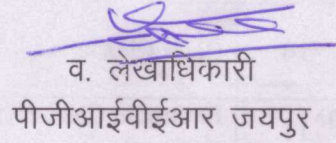 व. लेखाधिकारी
पीजीआईवीईआर जयपुर